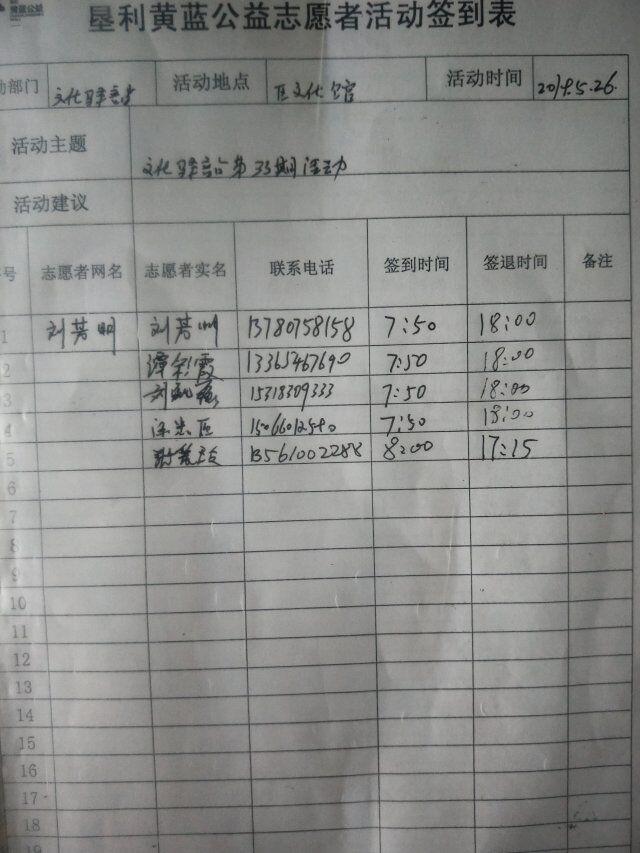 黄蓝公益
垦利黄蓝公益志愿者活动签到表
动部门 文化驿站 活动地点 区文化馆 活动时间 2019.5.26.
活动主题 文化驿站第33期活动
活动建议
号 志愿者网名 志愿者实名 联系电话 签到时间 签退时间 备注
1 刘芳明 刘芳 13780758158 7:50 18:00
2 谭彩霞 13365467690 7:50 18:00
3 15318309333 7:50 18:00
4 15066012540 7:50 18:00
5 13561002288 8:00 17:15
6
7
8
9
10
11
12
13
14
15
16
17
18
19